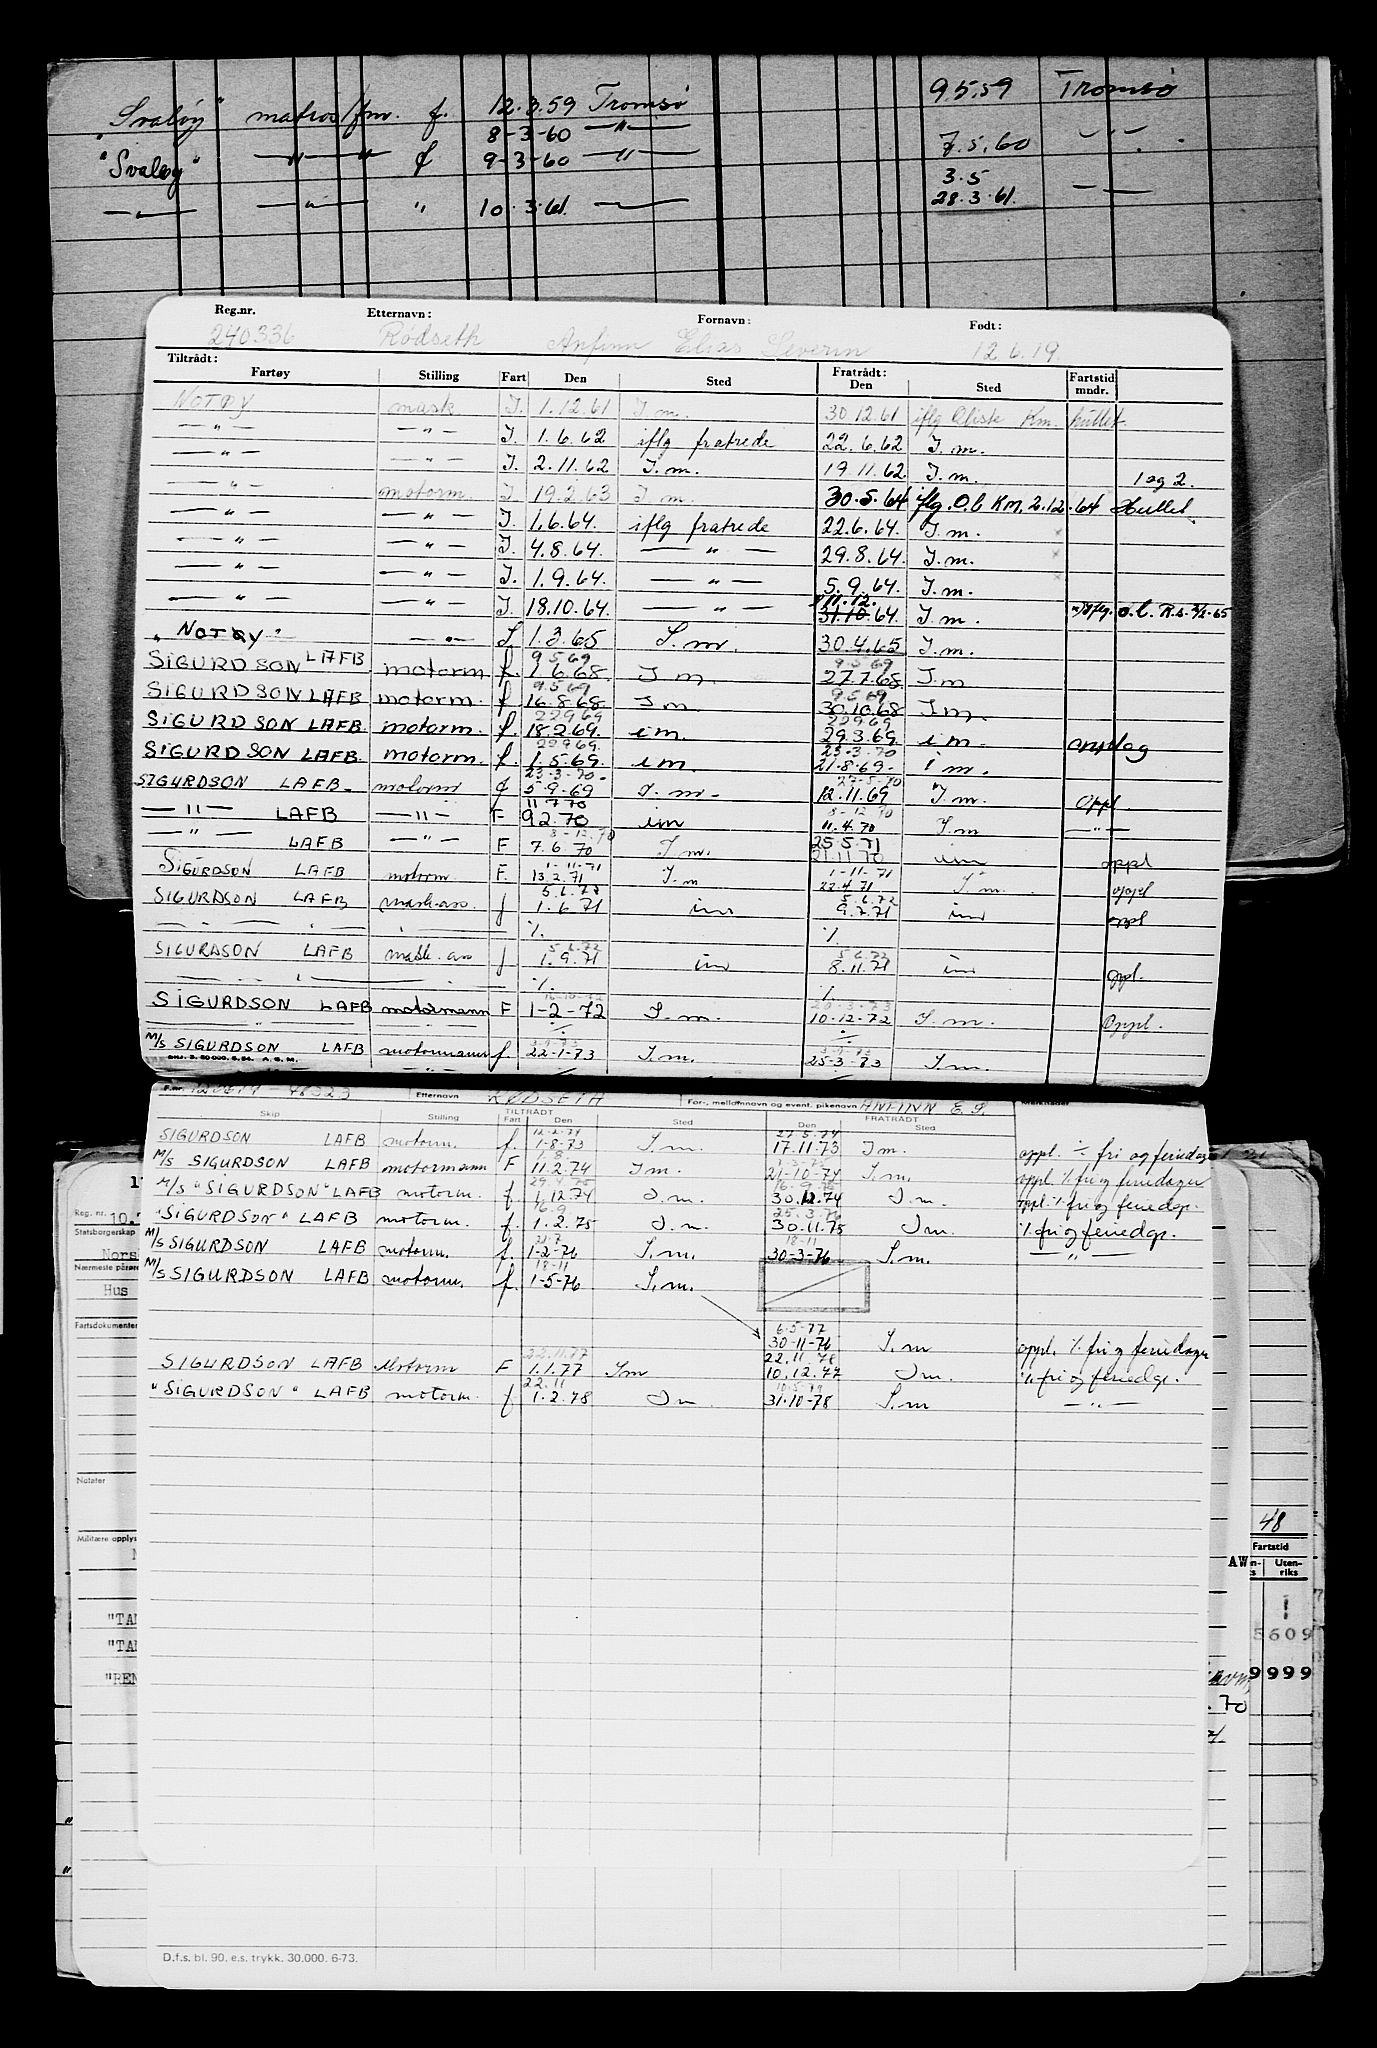 "Svaløy" matros/fm. f. 12.3.59 Tromsø 9.5.59 Tromsø
8-3-60 — " —
"Svaløy" — " — " — f 9-3-60 — " — 7.5.60 — " —
3.5
— " — — " — " 10.3.61. — 28.3.61. — " —
Reg.nr. Etternavn: Fornavn: Født:
240336 Rødseth Anfinn Elias Severin 12.6.19.
Tiltrådt: Fratrådt:
Fartøy Stilling Fart Den Sted Den Sted Fartstid mndr.
NOTØY mask. I. 1.12.61 I.m. 30.12.61 iflg Obisk Km. hullet.
— " — — " — I. 1.6.62 iflg fratrede 22.6.62 I.m.
— " — — " — I. 2.11.62 I.m. 19.11.62 I.m. 1 og 2.
— " — motorm. I 19.2.63 I.m. 30.5.64 iflg. O.b KM. 2.12.64 Hullet.
— " — — " — I. 1.6.64. iflg fratrede 22.6.64. I.m.
— " — — " — I. 4.8.64. — " — 29.8.64. I.m.
— " — — " — I. 1.9.64. — " — 5.9.64. I.m.
11.12.
— " — — " — I. 18.10.64. — " — 31.10.64. I.m.
"NOTØY" — " — I. 1.3.65 I.m. 30.4.65 I.m.
9569 9.5 69
SIGURDSON LAFB motorm. f. 1.6.68. I m. 27.7.68 I.m
9569 9569
SIGURDSON LAFB motorm. f 16.8.68 I m. 30.10.68 I.m.
22969 22969
SIGURDSON LAFB. motorm. f. 18.2.69. i m. 29.3.69. i m. opplag
22969. 23-3-70
SIGURDSON LAFB. motorm. f. 1.5.69. i m. 21.8.69- I m.
23-3-70- 27-5-70
SIGURDSON LAFB- motorm f 5-9.69 I.m- 12.11.69 I.m. oppl.
11 7 70 8-12 70
— " — LAFB — " — F 9 2.70 i m 11.4.70 I.m — " —
8-12.70 25.5.71
— " — LAFB — " — F 7.6.70 I.m. 21.11 70 im oppl
1-11-71 1-11-71
SIGURDSON LAFB motorm F. 13.2.71 I.m 22.4.71. I.m. oppl
5.6.72 5.6.72
SIGURDSON LAFB mask.ass. f 1.6.71 im 9.7.71 im oppl
— " — " — " — " — %. %.
5.6.72 5 6.72
SIGURDSON LAFB mask.ass f 1.9.71 im 8.11.71 im oppl.
%. %
SIGURDSON LAFB motormann F 1-2-72 I.m. 10-12-72 I.m. Oppl.
M/S SIGURDSON LAFB motormann f. 22-1-73 I.m. 25-3-73 I.m.
F.nr. 120619 - 48323 Etternavn RØDSETH For-, mellomnavn og event. pikenavn ANFINN E.S. Merknader
TILTRÅDT FRATRÅDT
Skip Stilling Fart Den Sted Den Sted
12-2-74 27-5-74
SIGURDSON LAFB motorm. f. 1-8-73 I.m. 17.11.73 I m. oppl. ÷ fri og feriedager
1.8
M/S SIGURDSON LAFB motormann F 11.2.74 I m. 21-10-74 I.m. oppl % fri og feriedager
29.4.75 16.9.75
M/S "SIGURDSON" LAFB motorm. f. 1.12.74 I.m. 30.12.74 I.m. oppl % fri og feriedgr.
16.9 25.3.76
"SIGURDSON" LAFB motorm. f. 1.2.75 I.m. 30.11.75 I m. % fri og feriedgr.
21.7 18-11
M/S SIGURDSON LAFB motorm. f. 1-2-76 I.m. 30-3-76 I.m. — " —
18-11
M/S SIGURDSON LAFB motorm. f. 1-5-76 I.m.
6.5-77
30-11-76 I.m oppl. % fri og feriedager
22.11.77 22.11.78
SIGURDSON LAFB Motorm F 1.1.77 I m 10.12.77 I m. % fri og feriedgr.
22.11 10.5.79
"SIGURDSON" LAFB motorm. f 1.2.78 I m. 31.10-78 I.m — " —
Reg. nr. 10.
Statsborgerskap
Nors
Nærmeste pårøre
Hus
Fartsdokumenter
Notater
Militære opplys
"TAN
"TAN
"REN
48
Fartstid
AW
Uten-
riks
5609
9999
.70
D.f.s. bl. 90. e.s. trykk. 30.000. 6-73.